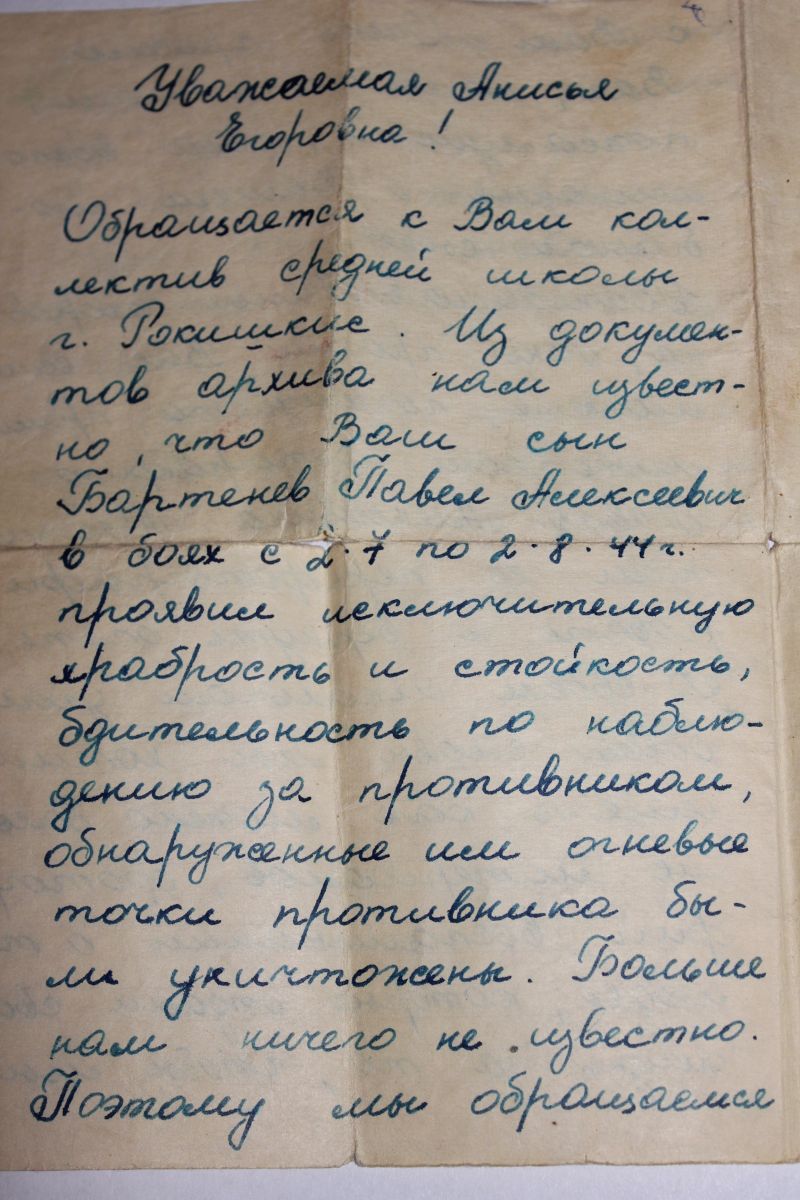 Уважаемая Анисья
Егоровна!
Обращается к Вам кол-
лектив средней школы
г. Рокишкис. Из докумен-
тов архива нам извест-
но, что Ваш сын
Бартенев Павел Алексеевич
в боях с 2.7 по 2.8.44 г.
проявил исключительную
храбрость и стойкость,
бдительность по наблю-
дению за противником,
обнаруженные им огневые
точки противника бы-
ли уничтожены. Больше
нам ничего не известно.
Поэтому мы обращаемся